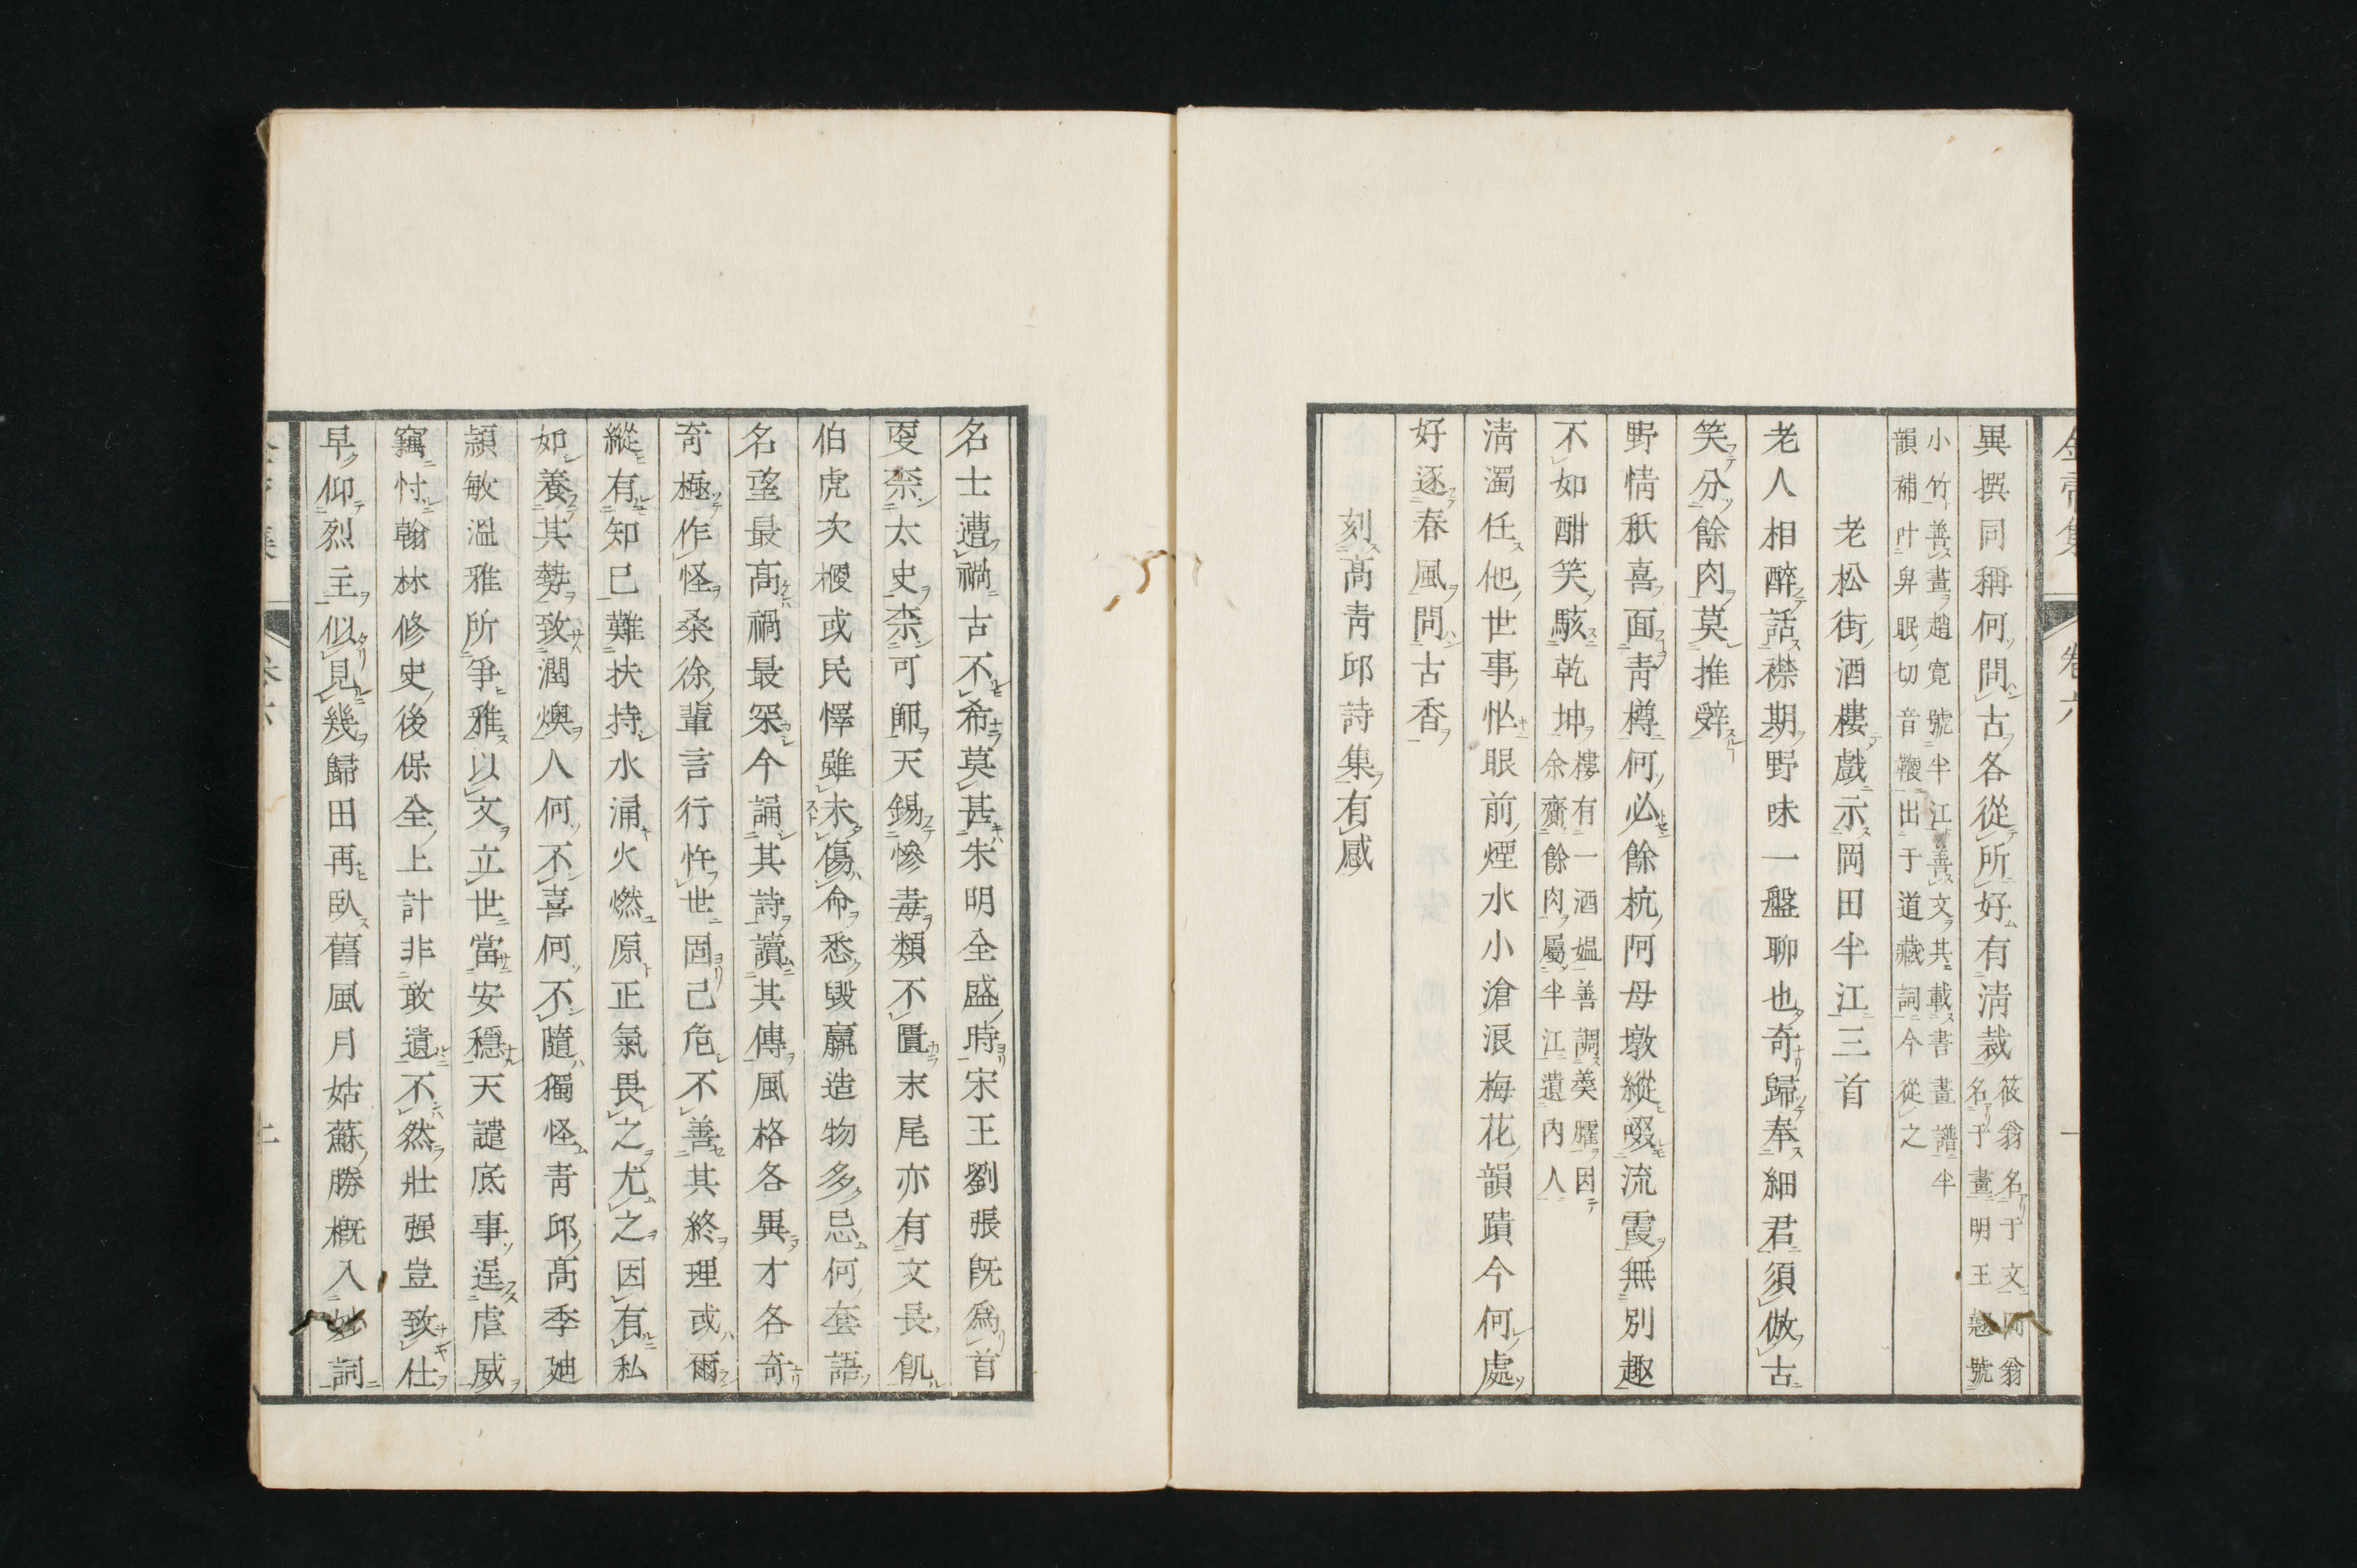 異撰同稱何問古各從所好有清裁
筱翁名于文岡翁
名于畫明王懸號
小竹善畫趙寛號半江善文其載書畫譜半
韻補叶卑眠切音鞭出于道藏詞今從之
老松街酒樓戲示岡田半江三首
老人相醉話襟期野味一盤聊也奇歸奉細君須倣古
笑分餘肉莫推辭
野情秖喜面青樽何必餘杭阿母墩縱啜流霞無別趣
不如酣笑駭乾坤
樓有一酒媼善調羮臛因
余齎餘肉屬半江遺內人
清濁任他世事忙眼前煙水小滄浪梅花韻蹟今何處
好逐春風問古香
刻高青邱詩集有感
名士遭禍古不希莫甚朱明全盛時宋王劉張旣爲首
更柰太史柰可師天錫慘毒類不匱末尾亦有文長飢
伯虎次楩或民懌雖未傷命悉毀羸造物多忌何套語
名望最高禍最罙今誦其詩讀其傳風格各異才各奇
奇極作怪桑徐輩言行忤世固己危不善其終理或爾
縱有知己難扶持水涌火燃原正氣畏之尤之因有私
如養其勢致潤燠人何不喜何不隨獨怪青邱高季迪
穎敏溫雅所爭雅以文立世當安穩天譴底事逞虐威
竊忖翰林修史後保全上計非敢遺不然壯强豈致仕
早仰烈主似見幾歸田再臥舊風月姑蘇勝概入妙詞
卷六